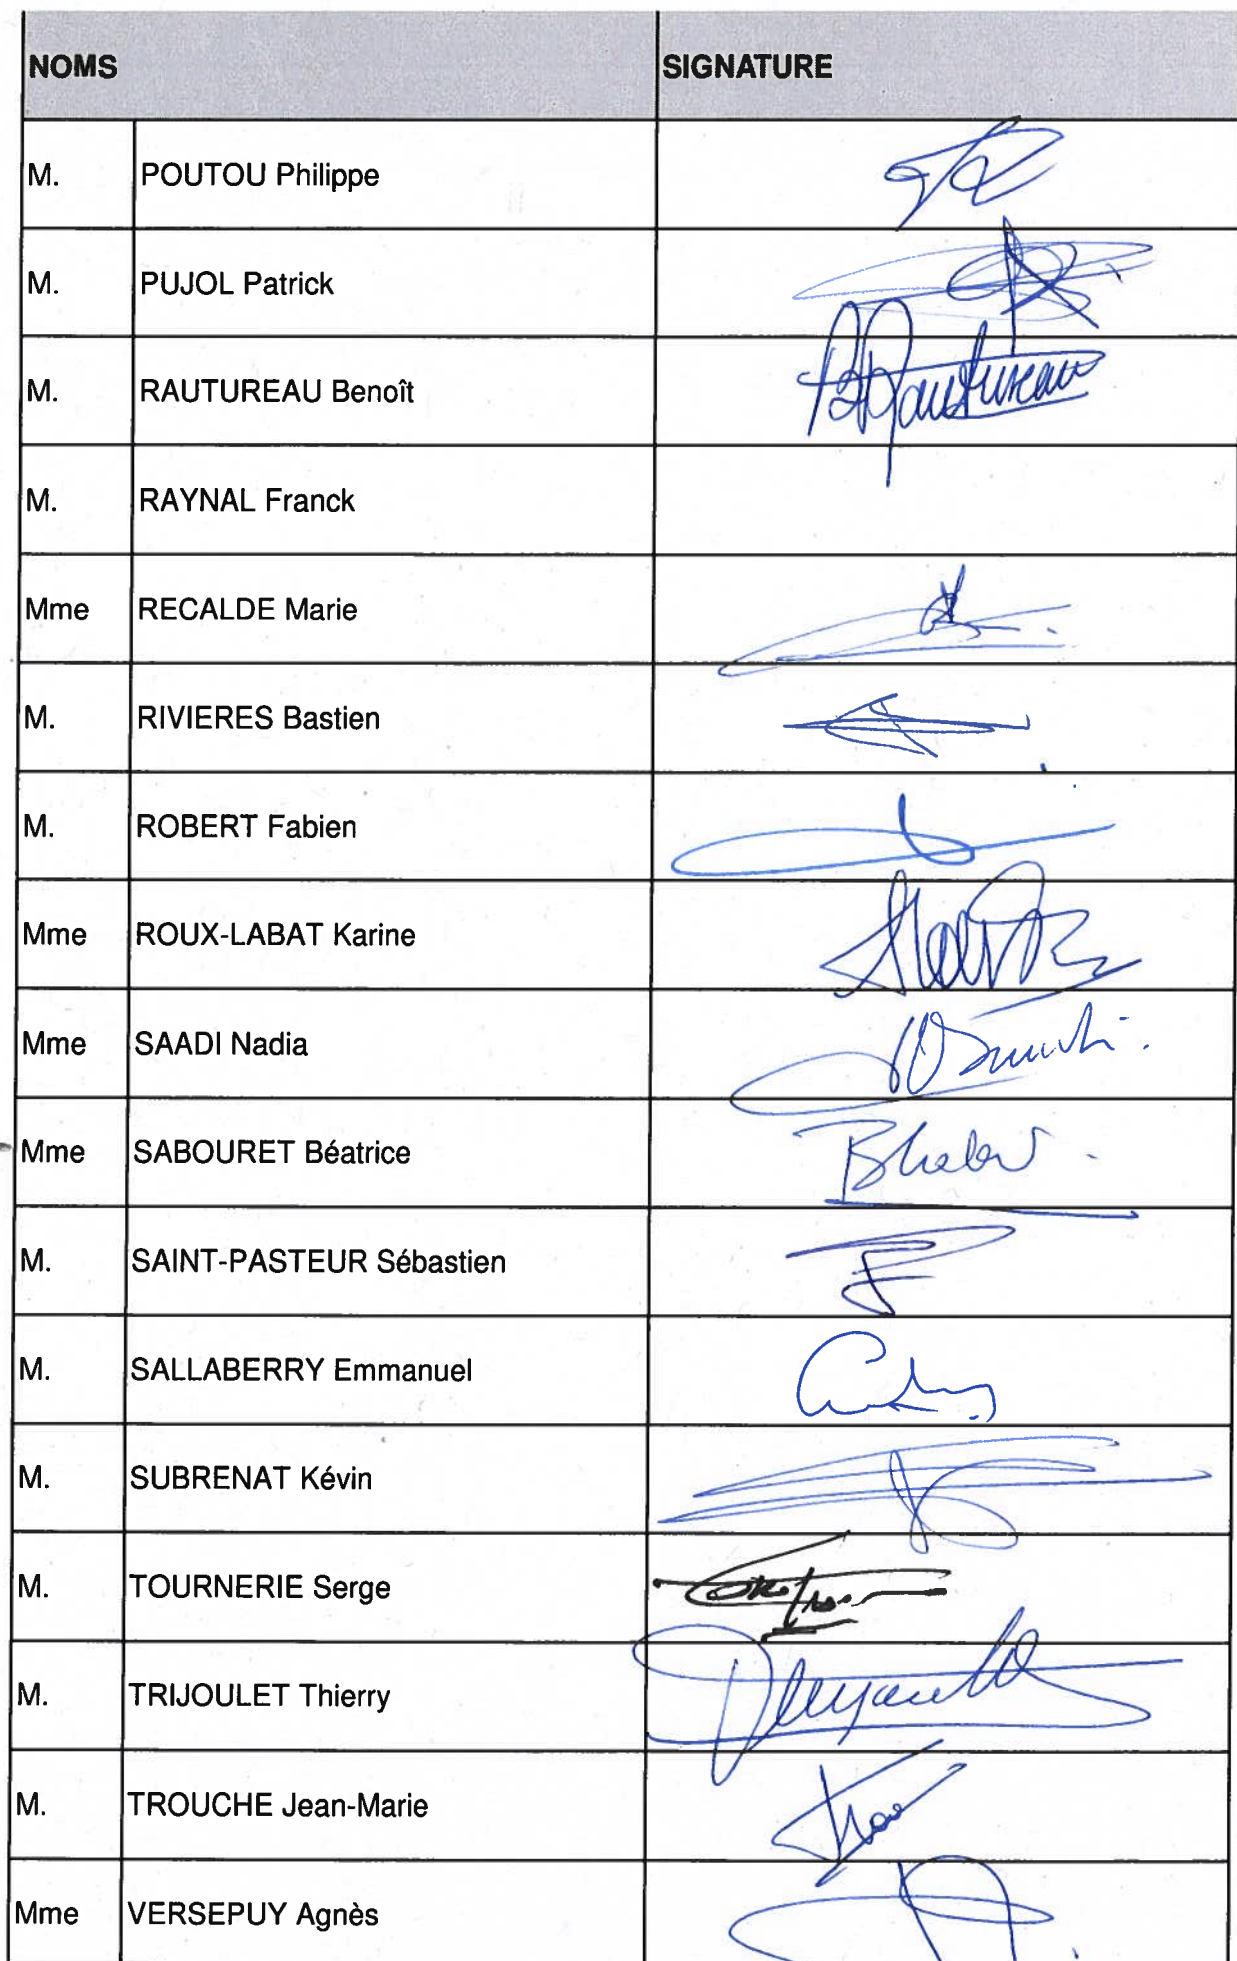 NOMS SIGNATURE
M. POUTOU Philippe
M. PUJOL Patrick
M. RAUTUREAU Benoît Rautureau
M. RAYNAL Franck
Mme RECALDE Marie
M. RIVIERES Bastien
M. ROBERT Fabien
Mme ROUX-LABAT Karine
Mme SAADI Nadia
Mme SABOURET Béatrice
M. SAINT-PASTEUR Sébastien
M. SALLABERRY Emmanuel
M. SUBRENAT Kévin
M. TOURNERIE Serge
M. TRIJOULET Thierry
M. TROUCHE Jean-Marie
Mme VERSEPUY Agnès